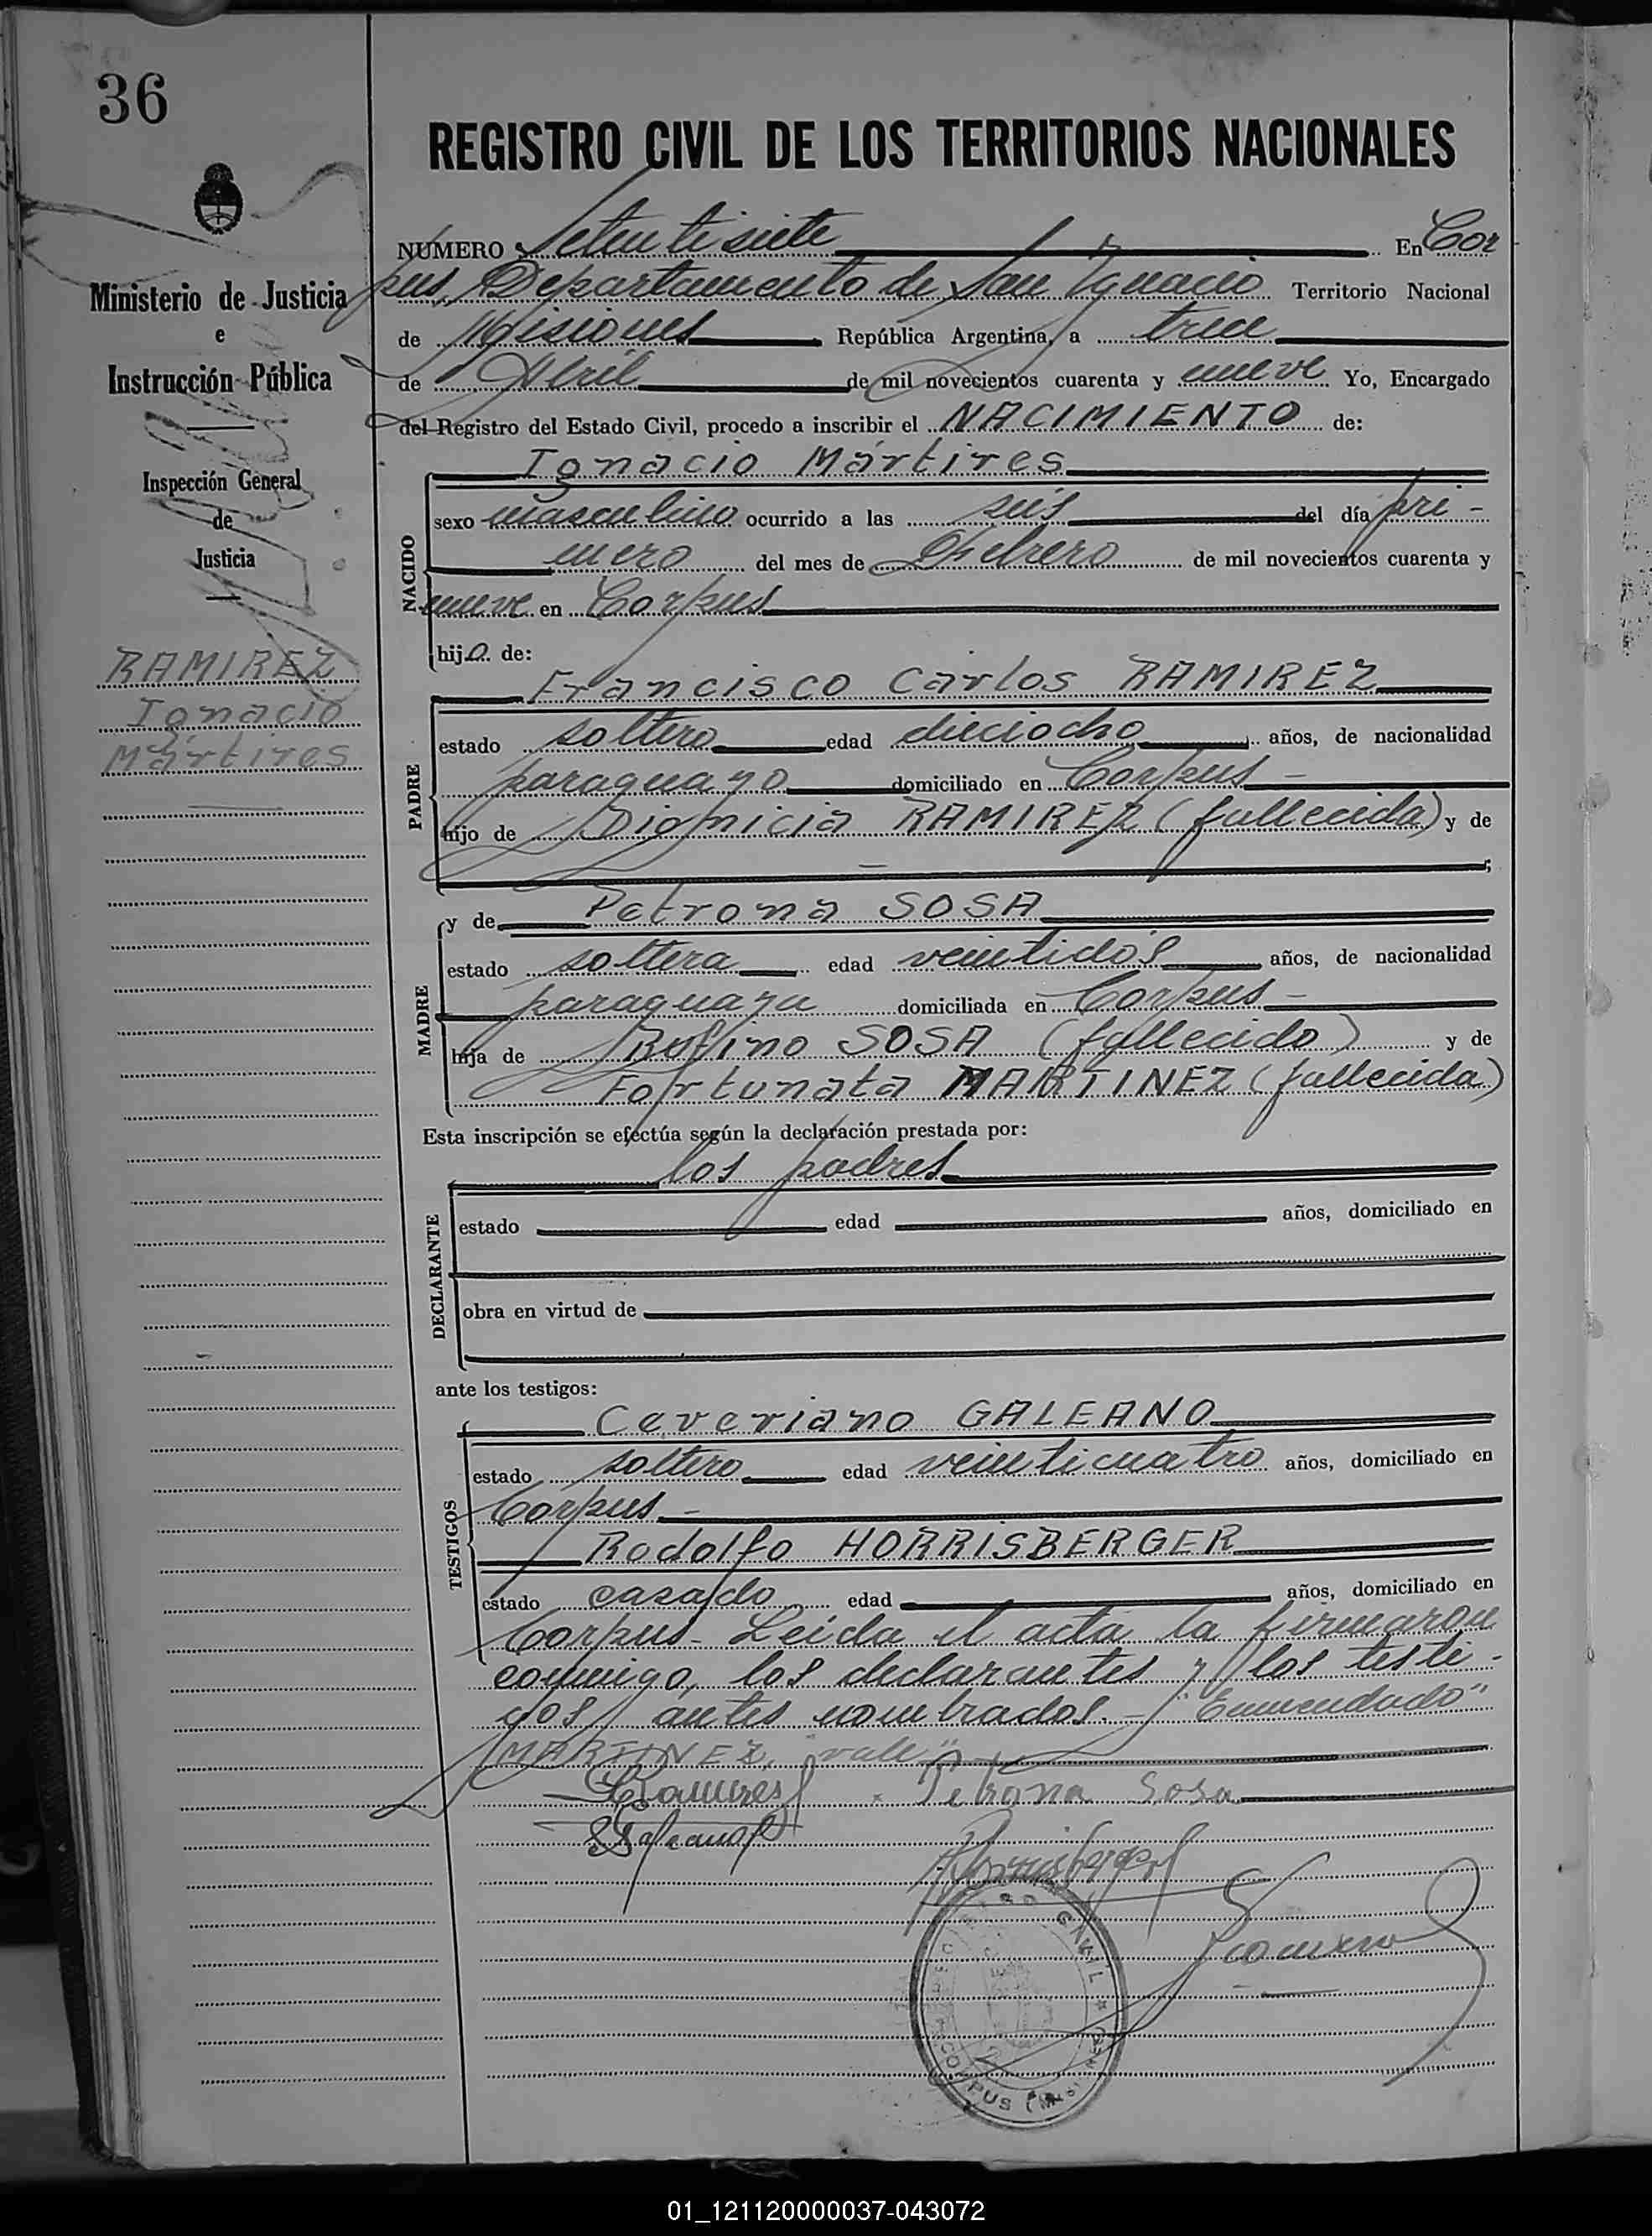 36
REGISTRO CIVIL DE LOS TERRITORIOS NACIONALES
Ministerio de Justicia
e
Instrucción Pública
Inspección General
de
Justicia
RAMIREZ
Ignacio
Mártires
NUMERO Setentisiete En Cor
pus, Departamento de San Ignacio Territorio Nacional
de Misiones República Argentina, a trece
de Abril de mil novecientos cuarenta y nueve Yo, Encargado
del Registro del Estado Civil, procedo a inscribir el NACIMIENTO de:
NACIDO
Ignacio Mártires
sexo masculino ocurrido a las seis del día pri-
mero del mes de Febrero de mil novecientos cuarenta y
nueve en Corpus
hijo de:
PADRE
Francisco Carlos RAMIREZ
estado soltero edad dieciocho años, de nacionalidad
paraguayo domiciliado en Corpus -
hijo de Dionicia RAMIREZ (fallecida) y de
MADRE
y de Petrona SOSA
estado soltera edad veintidós años, de nacionalidad
paraguaya domiciliada en Corpus -
hija de Rufino SOSA (fallecido) y de
Fortunata MARTINEZ (fallecida)
Esta inscripción se efectúa según la declaración prestada por:
DECLARANTE
los padres
estado edad años, domiciliado en
obra en virtud de
ante los testigos:
TESTIGOS
Ceveriano GALEANO
estado soltero edad veinticuatro años, domiciliado en
Corpus -
Rodolfo HORRISBERGER
estado casado edad años, domiciliado en
Corpus - Leída el acta la firmaron
conmigo, los declarantes y los testi-
gos antes nombrados. - "Enmendado"
MARTINEZ, "vale"
Ramires Petrona Sosa
SGaleano
Horrisberger
CIVIL
CORPUS (Mnes)
01_121120000037-043072